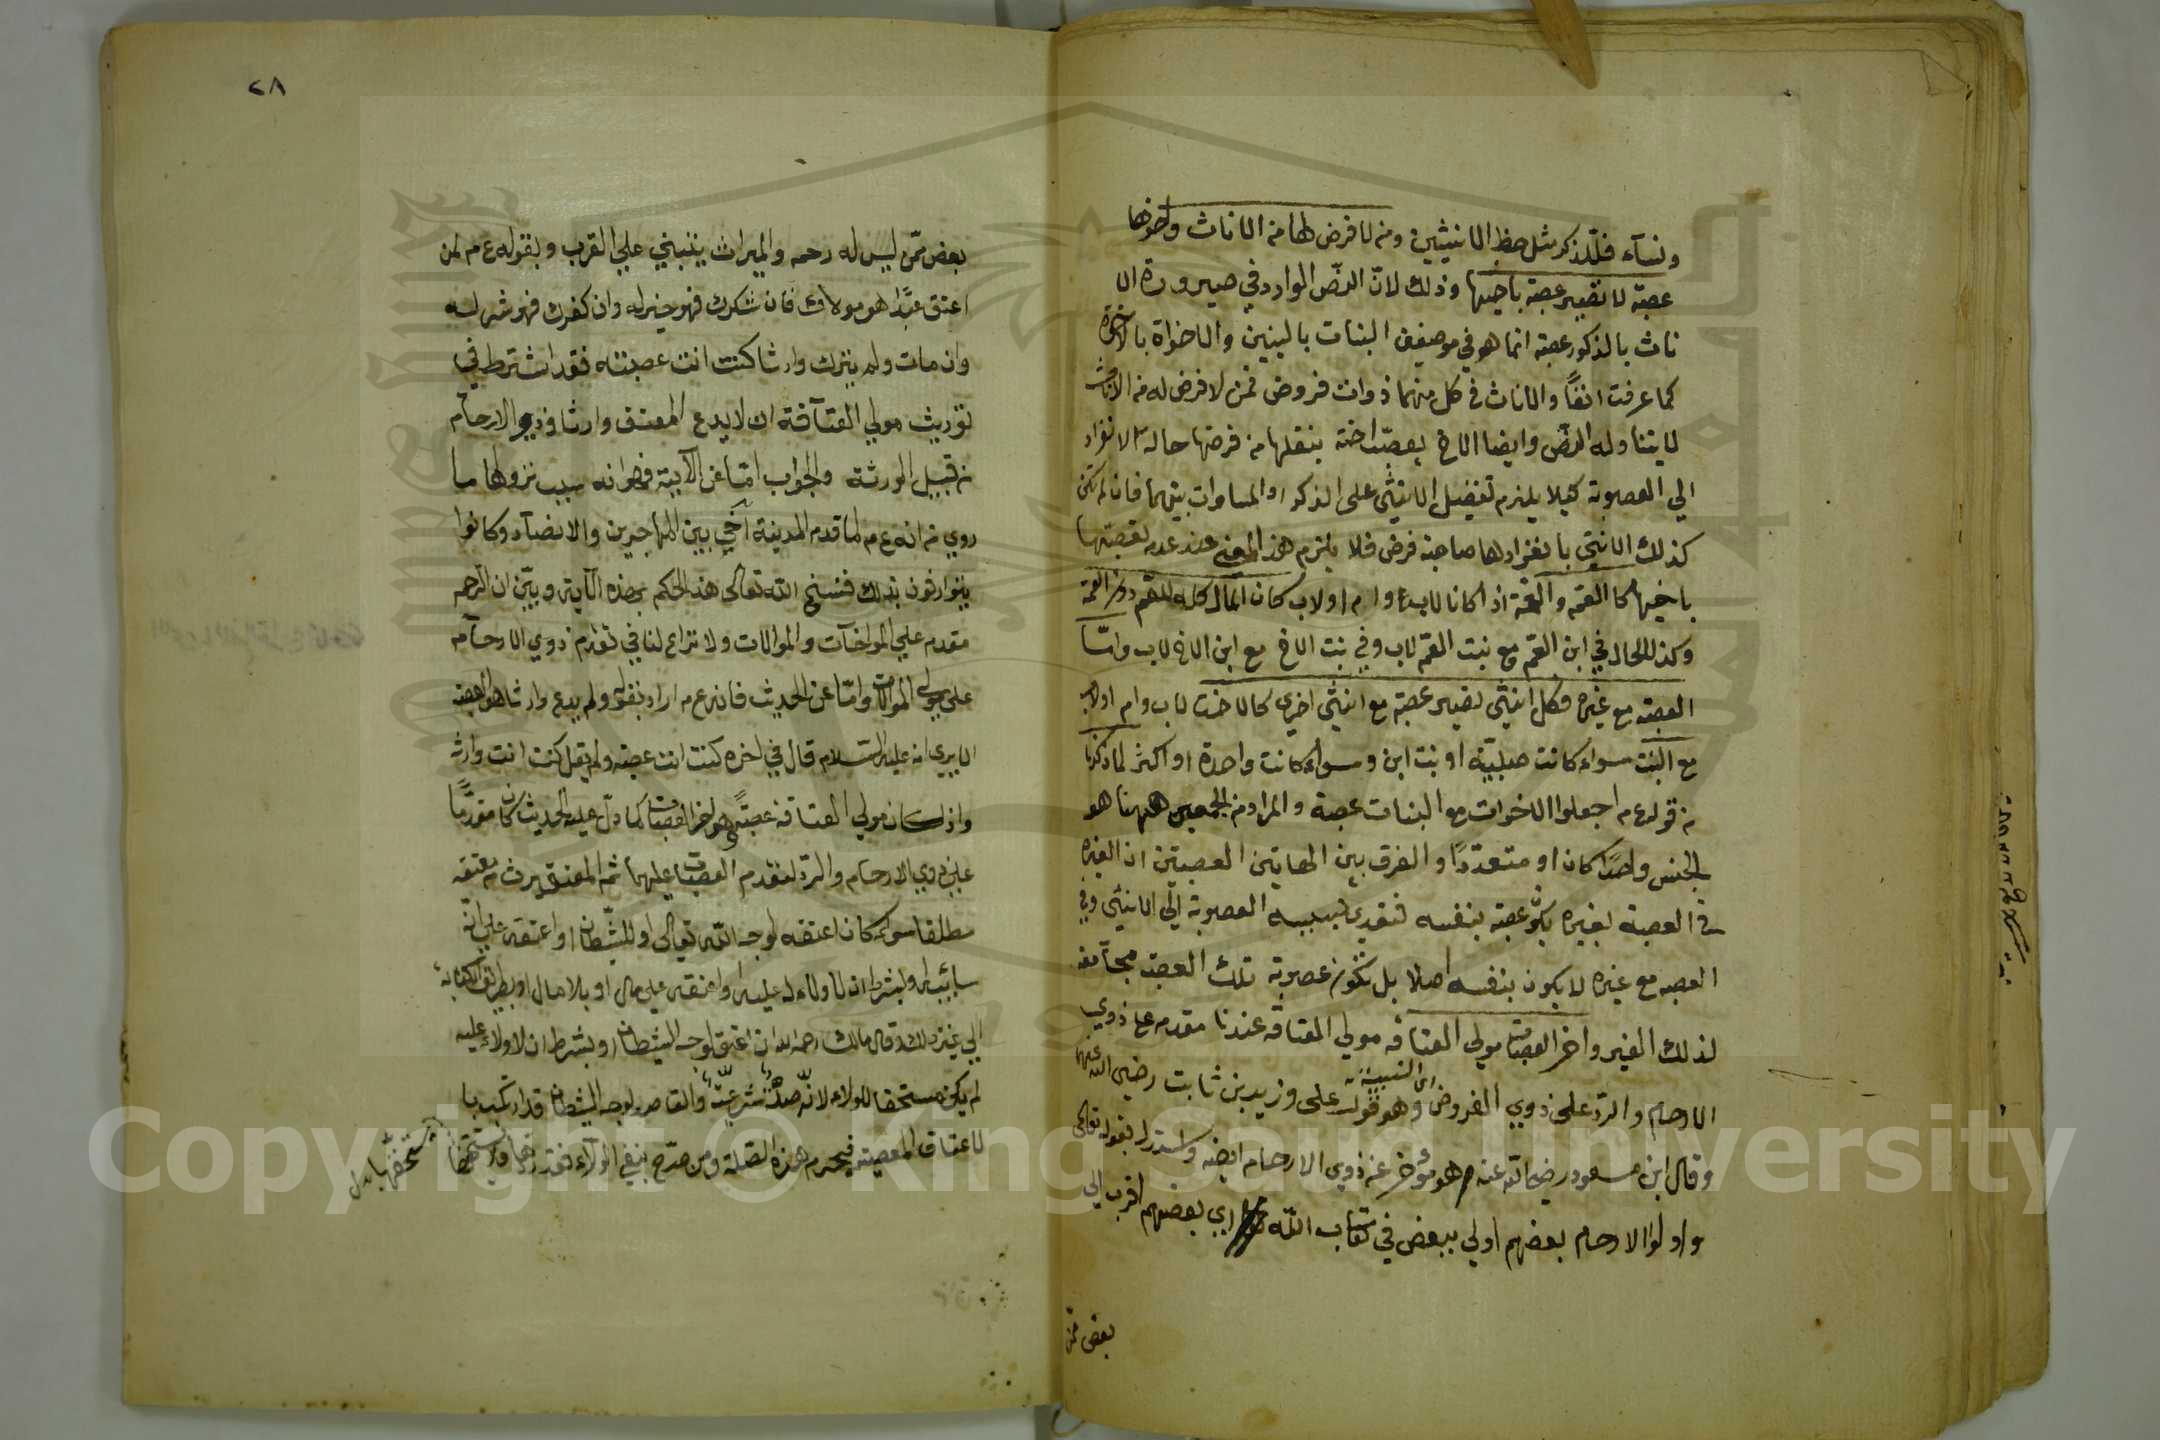 ونسآء فللذكر مثل حظ الانثيين ومن لا فرض لها من الاناث واخوها
عصبة لا تصير عصبة باخيها وذلك لانّ النصّ الوارد في صيرورة الا
ناث بالذكور عصبة انما هو في موضعين البنات بالبنين والاخوات بالاخوة
كما عرفت انفًا والاناث في كل منهما ذوات فروض فمن لا فرض له من الاناث
لا يتناوله النصّ وايضا الاخ يعصّب اخته بنقلها من فرضها حالة الانفراد
الى العصوبة كيلا يلزم تفضيل الانثى على الذكر او المساوات بينهما فان لم تكن
كذلك الانثى بانفرادها صاحبة فرض فلا يلزم هذا المعنى عند عدم تعصبتها
باخيها كالعم والعمة اذا كانا لاب وام او لاب كان المال كله للعم دون العمة
وكذلك الحال في ابن العم مع بنت العم لاب وفي بنت الاخ مع ابن الاخ لاب وامّا
العصبة مع غيره فكل انثى تصير عصبة مع انثى اخرى كالاخت لاب وام او لاب
مع البنت سواء كانت صلبيّة او بنت ابن وسواء كانت واحدة او اكثر لما ذكرنا
من قوله ع م اجعلوا الاخوات مع البنات عصبة والمراد من الجمعين ههنا هو
الجنس واحدًا كان او متعدّدًا والفرق بين هاتين العصبتين ان الغير
في العصبة بغيره يكون عصبة بنفسه فتعدى بسببه العصوبة الى الانثى وفي
العصبة مع غيره لا يكون بنفسه اصلا بل تكون عصوبة تلك العصبة مجامعة
لذلك الغير واخر العصبات مولى العتاقة مولى العتاقة عندنا مقدم على ذوي
اى النسبية
الارحام والرد على ذوي الفروض وهو قول على وزيد بن ثابت رضى الله عنهما
وقال ابن مسعود رضي الله عنه هو مؤخر عن ذوي الارحام ايضه واستدل بقوله تعالى
واولوا الارحام بعضهم اولى ببعض في كتاب الله اي بعضهم اقرب الى
بعض ممن
٢٨
بعض ممّن ليس له رحم والميراث ينبني على القرب وبقوله ع م لمن
اعتق عبدًا هو مولاك فان شكرك فهو خير له وان كفرك فهو شر له
وان مات ولم يترك وارثا كنت انت عصبته فقد اشترط في
توريث مولى العتاقة ان لا يدع المعتق وارثا وذوي الارحام
من قبيل الورثة والجواب امّا عن الآية فهو انه سبب نزولها ما
روي من انه ع م لما قدم المدينة آخى بين المهاجرين والانصار وكانوا
يتوارثون بذلك فنسخ الله تعالى هذا الحكم بهذه الآية وبيّن ان الرحم
مقدم على المواخات والموالات ولا نزاع لنا في تقدم ذوي الارحام
على مولى الموالات وامّا عن الحديث فانه ع م اراد بقوله ولم يدع وارثا هو العصبة
الا يرى انه عليه السلام قال في اخره كنت انت عصبته ولم يقل كنت انت وارثه
واذا كان مولى العتاقة عصبةً وهو اخر العصبات كما دل عليه الحديث كان مقدّمًا
على ذوي الارحام والرد لتقدم العصبات عليهما ثم المعتق يرث من معتقه
مطلقا سواء كان اعتقه لوجه الله تعالى او للشيطان او اعتقه على انّه
سائبة او بشرط ان لا ولاء له عليه او اعتقه على مال او بلا مال او بطريق الكتابة
الى غير ذلك وقال مالك رحمه الله ان اعتق لوجه الشيطان او بشرط ان لا ولاء عليه
لم يكن مستحقا للولاء لانّه صلة شرعيّة والقاصد لوجه الشيطان قد ارتكب با
لاعتاق المعصية فيحرم هذه الصلة ومن صرّح بنفي الولاء فقد